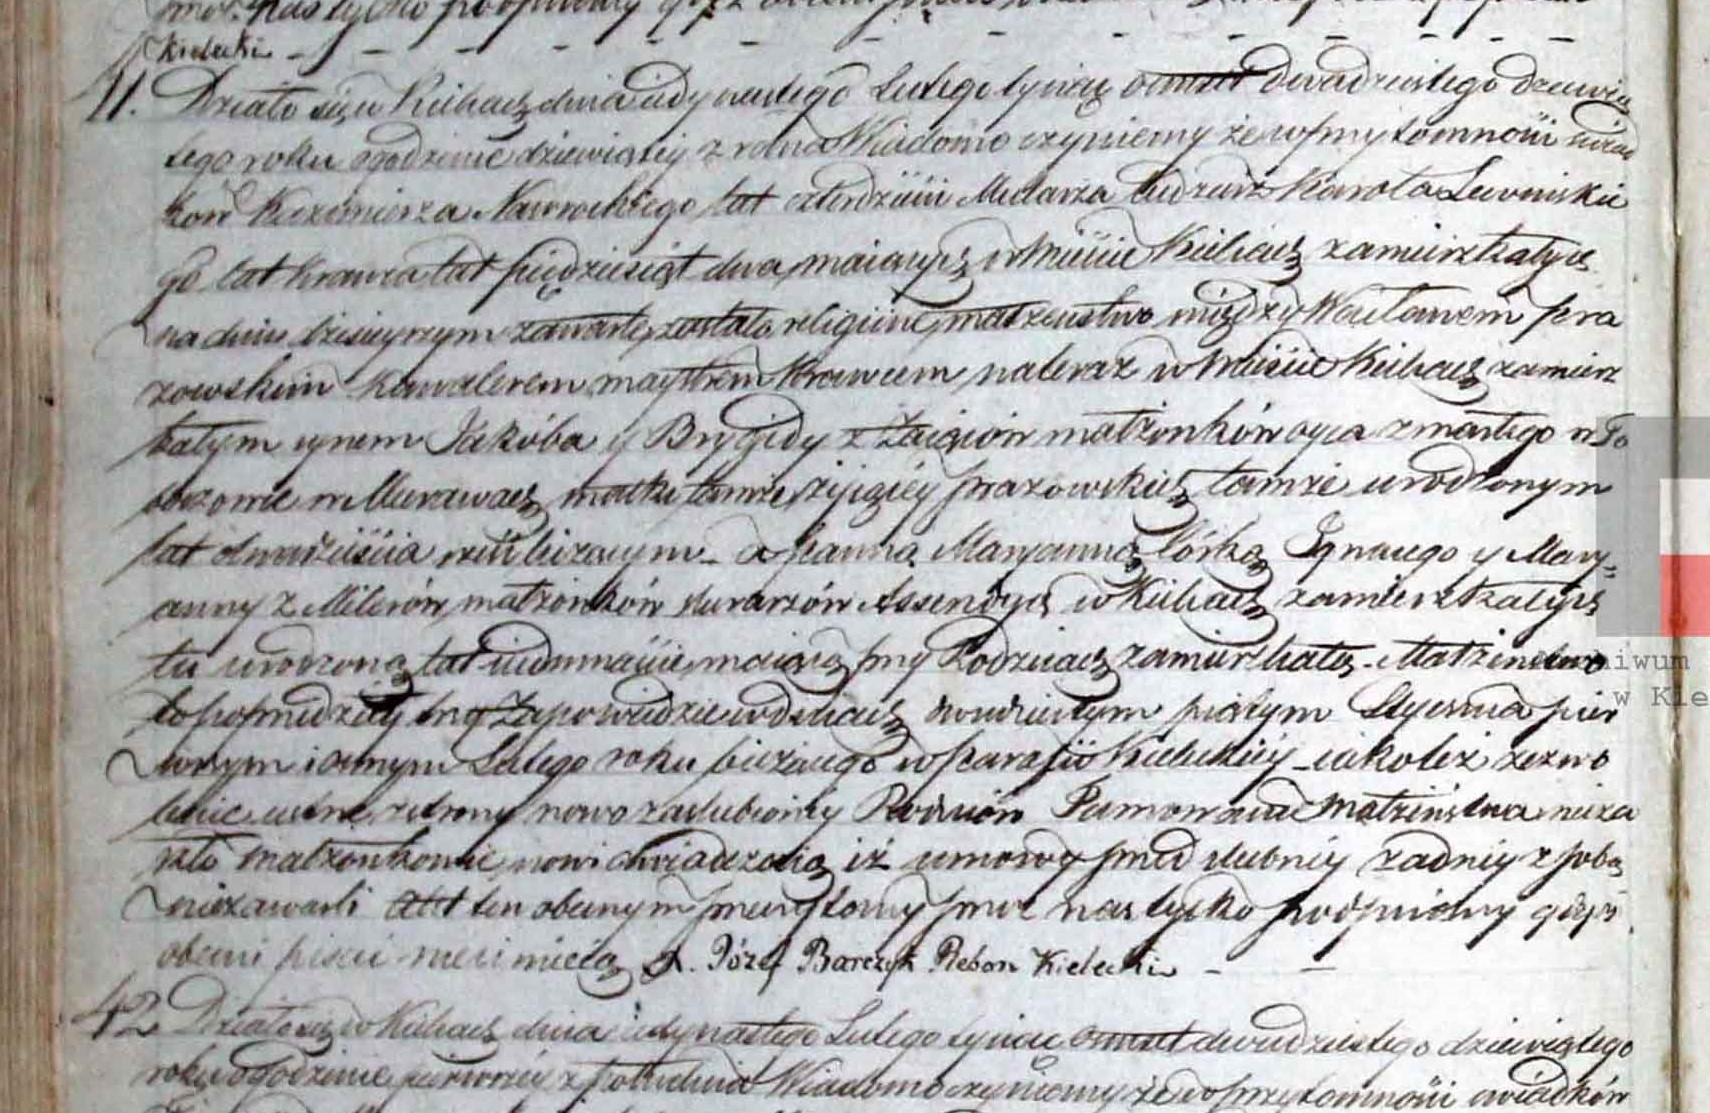 przez nas tylko podpisany gdyż
Kielecki
41. Działo się w Kielcach dnia iedynastego Lutego tysiąc osmset dwudziestego dziewią
tego roku ogodzinie dziewiątey z rana Wiadomo czyniemy że w przytomności świad
ków Kazimierza Nawrockiego lat czterdzieści Mularza tudzież Karola Lewińskie
go lat krawca lat piędziesiąt dwa maiących w Mieście Kielcach zamieszkałych
na dniu dzisieyszym zawarte zostało religiine małżeństwo między Wacławem Pra
zowskim Kawalerem maystrem Krawcem na teraz w Mieście Kielcach zamiesz
kałym synem Jakóba y Brygidy z małżonków oyca zmarłego w
matki tamże żyiącey Prazowskich tamże urodzonym
lat dwadzieścia sześć liczącym - a Panną Maryanną Córką Ignacego y Mary=
anny z Milerów małżonków Assendych w Kielcach zamieszkałych
tu urodzoną lat siedmnaście maiącą przy Rodzicach zamieszkałą - Małżeństwo
to poprzedziły trzy Zapowiedzie w dniach dwudziestym piątym Stycznia pier
wszym i osmym Lutego roku bieżącego w Parafii Kieleckiey - iakoteż zezwo
lenie ustne ze strony nowo zaślubioney Rodziców Tamowanie Małżeństwa nieza
szło małżonkowie nowi oświadczaią iż umowy przed ślubney żadney z sobą
niezawarli akt ten obecnym przeczytany przez nas tylko podpisany gdyż
obecni pisać nieumieią X. Józef Barczyk Pleban Kielecki
42 Działo się w Kielcach dnia iedynastego Lutego tysiąc osmset dwudziestego dziewiątego
roku o godzinie pierwszey z południa Wiadomo czyniemy że w przytomności świadków